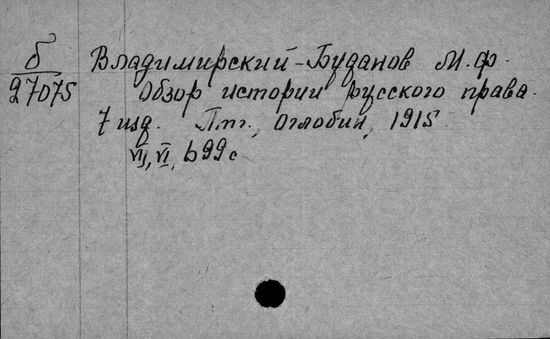 б
27075
Владимирский-Буданов М.Ф.
Обзор истории русского права.
7 изд. Птг., Оглобин, 1915
VII, VI, 699 с